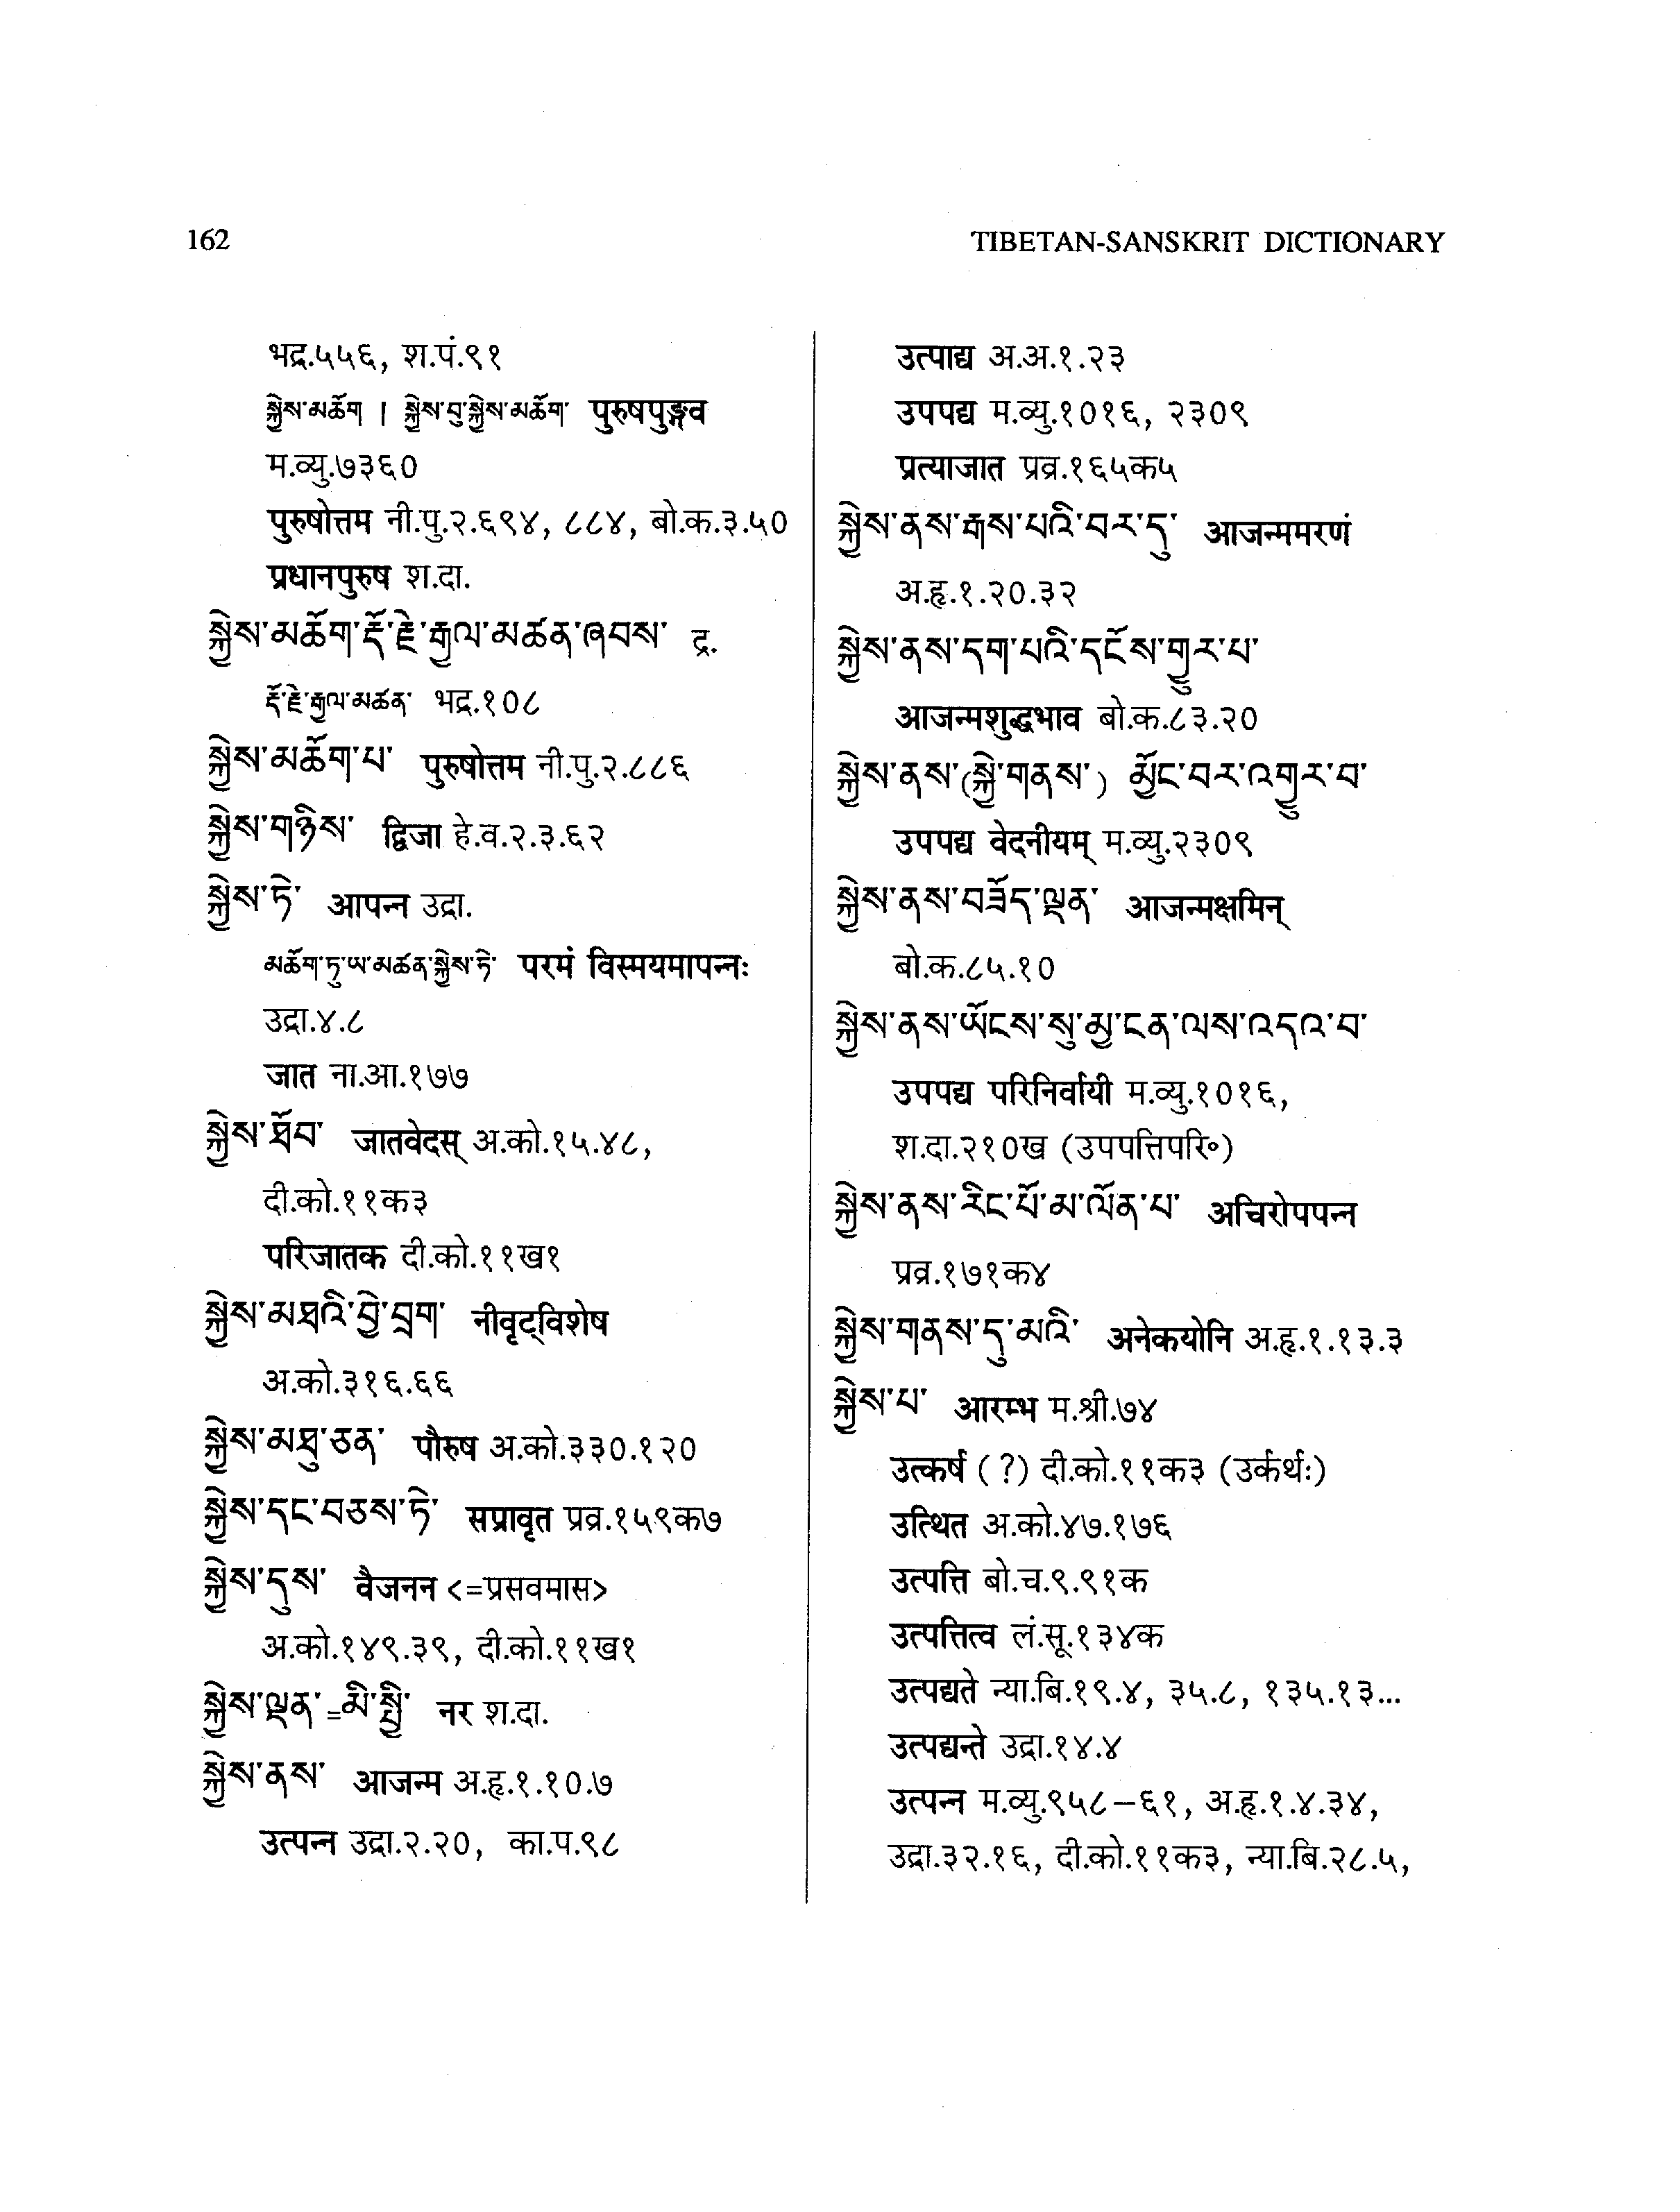 162
TIBETAN-SANSKRIT DICTIONARY
भद्र.५५६, श.पं.९१
སྐྱེས་མཆོག । སྐྱེས་བུ་སྐྱེས་མཆོག་ पुरुषपुङ्गव
म.व्यु.७३६०
पुरुषोत्तम नी.पु.२.६९४, ८८४, बो.क.३.५०
प्रधानपुरुष श.दा.
སྐྱེས་མཆོག་རྡོ་རྗེ་རྒྱལ་མཚན་ཞབས་ द्र.
རྡོ་རྗེ་རྒྱལ་མཚན་ भद्र.१०८
སྐྱེས་མཆོག་པ་ पुरुषोत्तम नी.पु.२.८८६
སྐྱེས་གཉིས་ द्विजा हे.व.२.३.६२
སྐྱེས་ཏེ་ आपन्न उद्रा.
མཆོག་ཏུ་ཡ་མཚན་སྐྱེས་ཏེ་ परमं विस्मयमापन्नः
उद्रा.४.८
जात ना.आ.१७७
སྐྱེས་ཐོབ་ जातवेदस् अ.को.१५.४८,
दी.को.११क३
परिजातक दी.को.११ख१
སྐྱེས་མཐའི་བྱེ་བྲག་ नीवृट्विशेष
अ.को.३१६.६६
སྐྱེས་མཐུ་ཅན་ पौरुष अ.को.३३०.१२०
སྐྱེས་དང་བཅས་ཏེ་ सप्रावृत प्रव्र.१५९क७
སྐྱེས་དུས་ वैजनन <=प्रसवमास>
अ.को.१४९.३९, दी.को.११ख१
སྐྱེས་ལྡན་=མི་སྤྱི་ नर श.दा.
སྐྱེས་ནས་ आजन्म अ.हृ.१.१०.७
उत्पन्न उद्रा.२.२०, का.प.९८
उत्पाद्य अ.अ.१.२३
उपपद्य म.व्यु.१०१६, २३०९
प्रत्याजात प्रव्र.१६५क५
སྐྱེས་ནས་རྒས་པའི་བར་དུ་ आजन्ममरणं
अ.हृ.१.२०.३२
སྐྱེས་ནས་དག་པའི་དངོས་གྱུར་པ་
आजन्मशुद्धभाव बो.क.८३.२०
སྐྱེས་ནས་(སྐྱེ་གནས་) མྱོང་བར་འགྱུར་བ་
उपपद्य वेदनीयम् म.व्यु.२३०९
སྐྱེས་ནས་བཟོད་ལྡན་ आजन्मक्षमिन्
बो.क.८५.१०
སྐྱེས་ནས་ཡོངས་སུ་མྱ་ངན་ལས་འདའ་བ་
उपपद्य परिनिर्वायी म.व्यु.१०१६,
श.दा.२१०ख (उपपत्तिपरि॰)
སྐྱེས་ནས་རིང་པོ་མ་ལོན་པ་ अचिरोपपन्न
प्रव्र.१७१क४
སྐྱེས་གནས་དུ་མའི་ अनेकयोनि अ.हृ.१.१३.३
སྐྱེས་པ་ आरम्भ म.श्री.७४
उत्कर्ष (?) दी.को.११क३ (उर्कर्थः)
उत्थित अ.को.४७.१७६
उत्पत्ति बो.च.९.९१क
उत्पत्तित्व लं.सू.१३४क
उत्पद्यते न्या.बि.१९.४, ३५.८, १३५.१३...
उत्पद्यन्ते उद्रा.१४.४
उत्पन्न म.व्यु.९५८–६१, अ.हृ.१.४.३४,
उद्रा.३२.१६, दी.को.११क३, न्या.बि.२८.५,